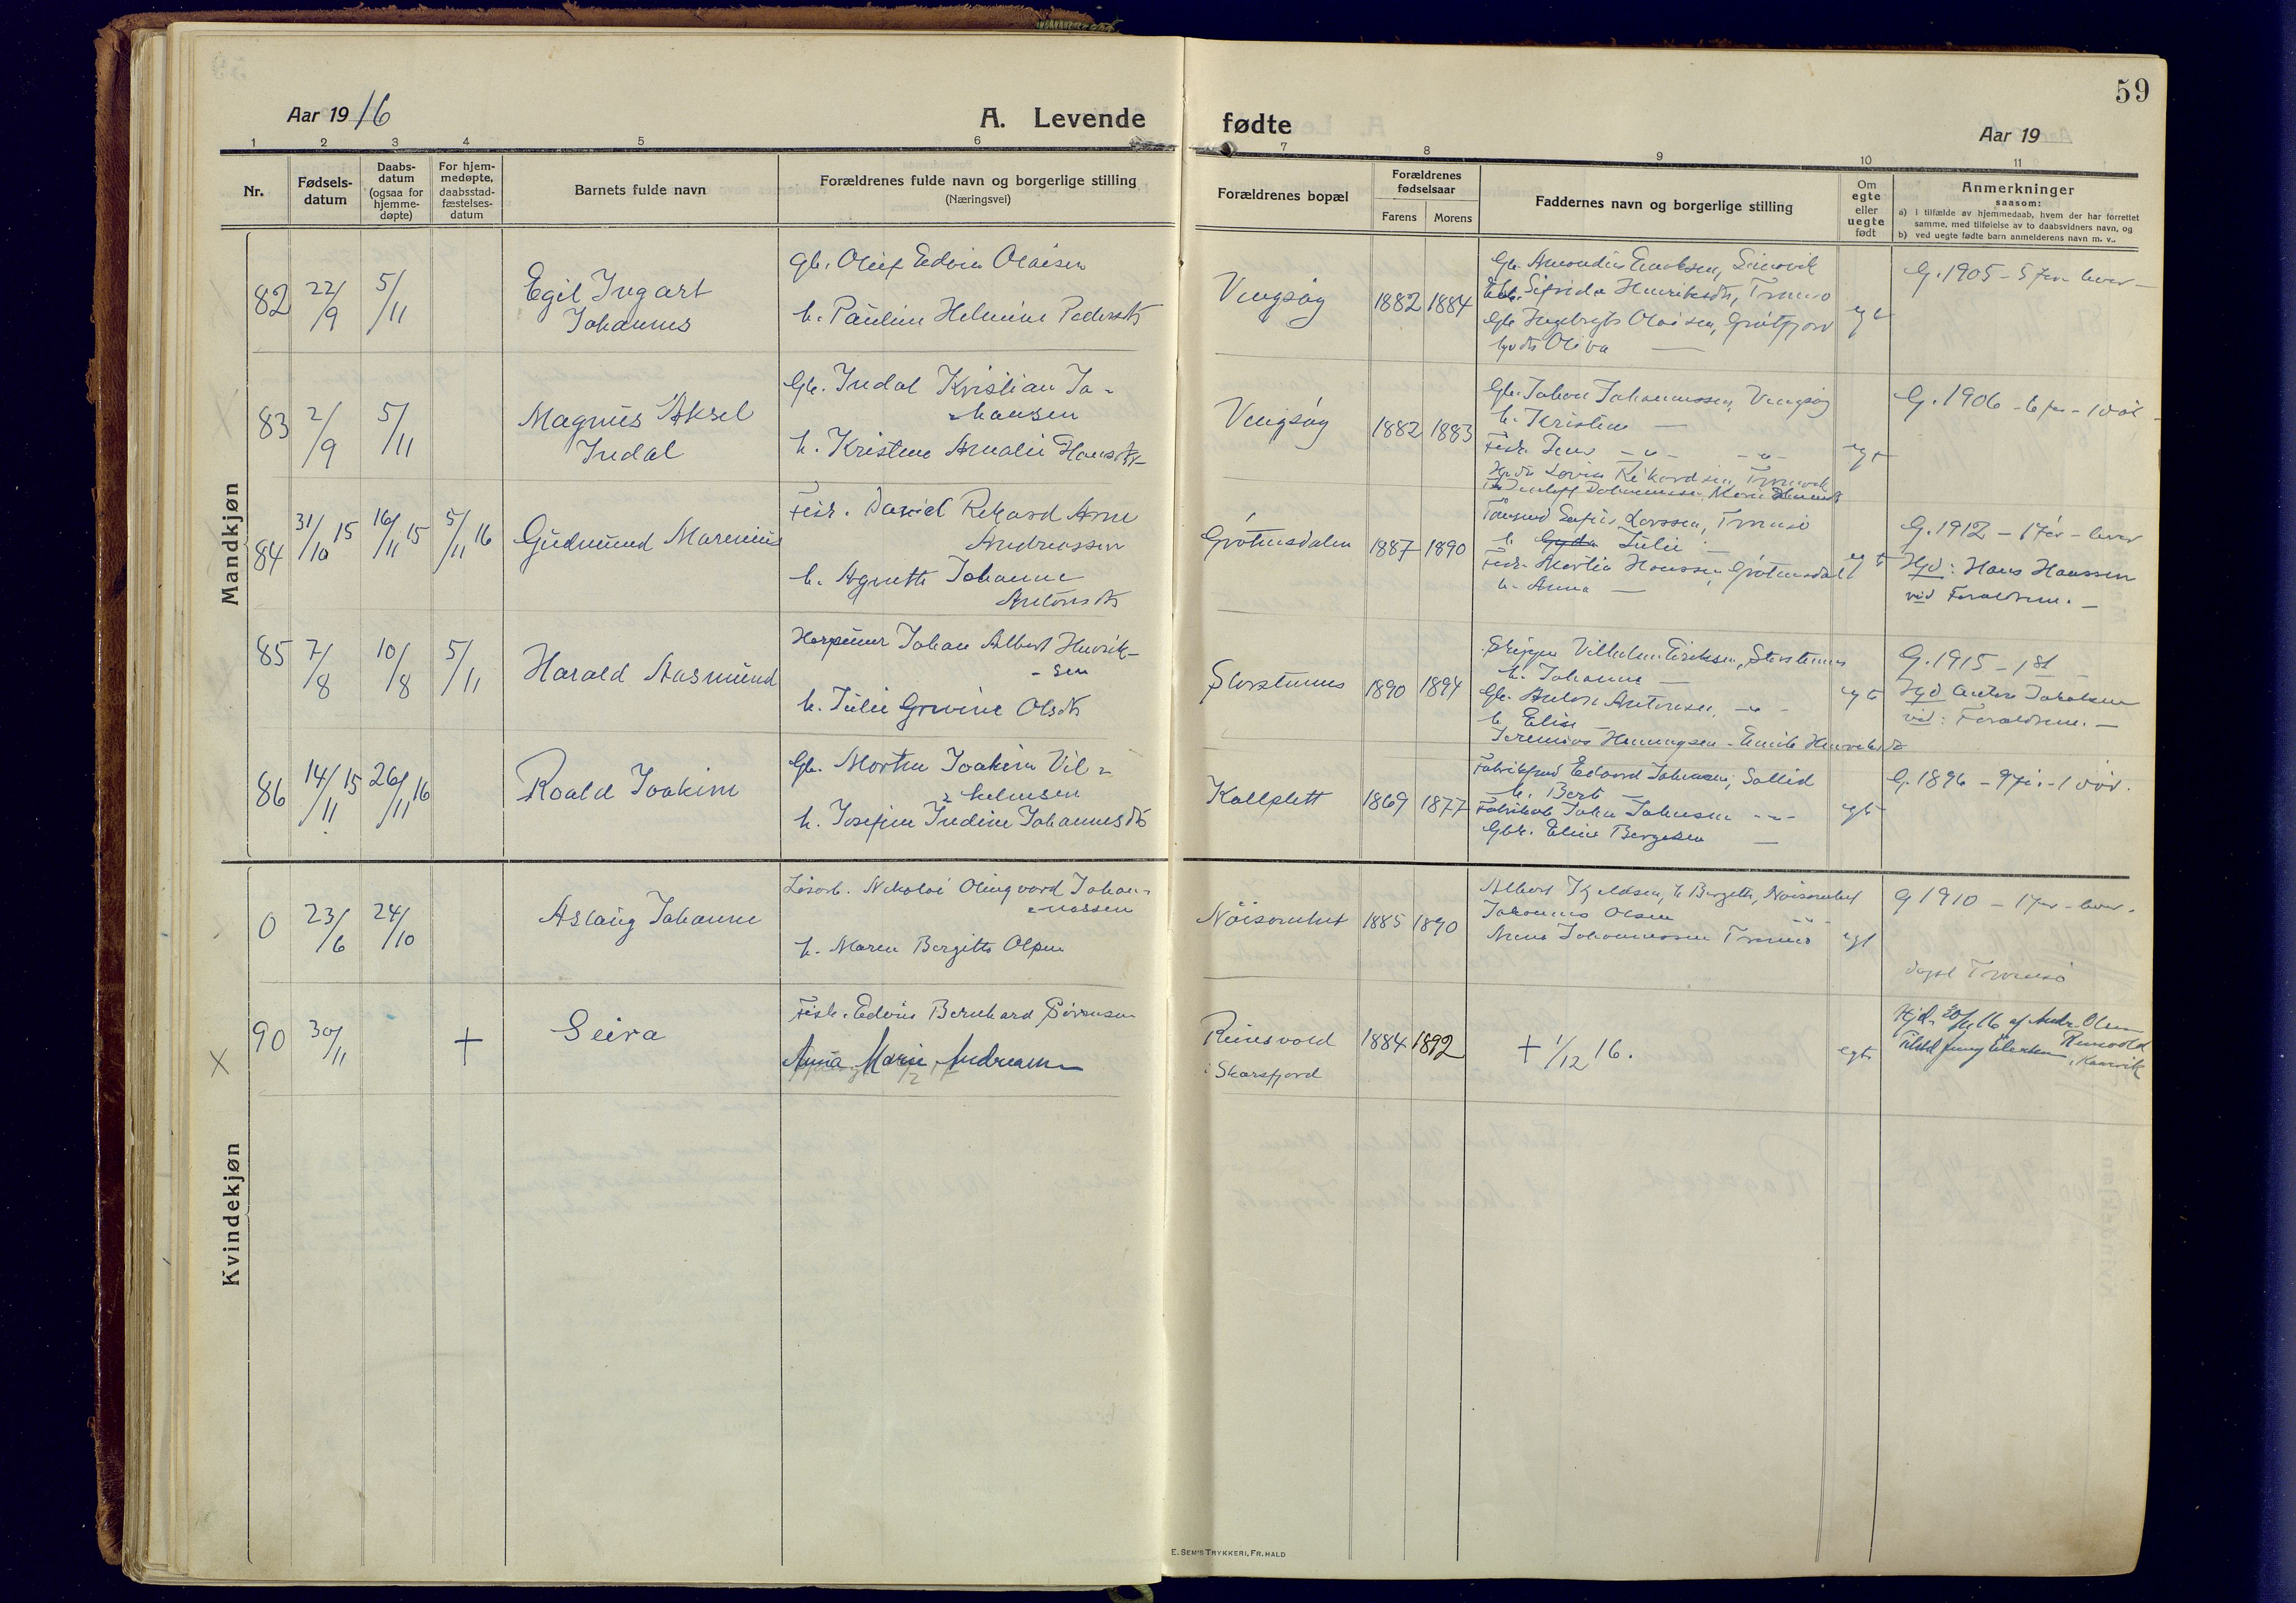 59
Aar 1916
A. Levende fødte
Aar 19
1 2 3 4 5 6 7 8 9 10 11
Nr.
Fødsels-
datum
Daabs-
datum
(ogsaa for
hjemme-
døpte)
For hjem-
medøpte,
daabsstad-
fæstelses-
datum
Barnets fulde navn
Forældrenes fulde navn og borgerlige stilling
(Næringsvei)
Forældrenes bopæl
Forældrenes
fødselsaar
Farens Morens
Faddernes navn og borgerlige stilling
Om
egte
eller
uegte
født
Anmerkninger
saasom:
a) i tilfælde av hjemmedaab, hvem der har forrettet
samme, med tilføielse av to daabsvidners navn, og
b) ved uegte fødte barn anmelderens navn m. v..
Mandkjøn
82
22/9
5/11
Egil Ingart
Johannes
Gb. Oluf Edvin Olaisen
h. Pauline Helmine Pedersdt
Vengsøy
1882 1884
Henriksdt, Tromsø
Gb. Ingebrigt Olaisen, Grøtfjord
Oliva —
egt
G. 1905 – 5 før – lever –
83
2/9
5/11
Magnus Aksel
Indal
Gb. Indal Kristian Jo-
hansen
h. Kristine Amalie Hansdt
Vengsøy
1882 1883
Gb. Johan Johannessen, Vengsøy
h. Kristine —
Fisk. Jens – " – – " –
egt
G. 1906 – 6 før – 1 død –
84
31/10 15
16/11 15
5/11 16
Gudmund Marenius
Fisk. Daniel Rikard Arne
Andreassen
h. Agnethe Johanne
Antonsdt
Grøtnesdalen
1887 1890
Larssen, Tromsø
h. Gyda Julie —
Fisk. Martin Hanssen, Grøtnesdal
h. Anna —
egt
G. 1912 – 1 før – lever
Hjd: Hans Hanssen
vid Forældrene. —
85
7/8
10/8
5/11
Harald Aasmund
Harpuner Johan Albert Henrik-
sen
h. Julie Grevine Olsdt
Storstennes
1890 1894
Skipper Vilhelm Eriksen, Storstennes
h. Johanne —
Gb. Anton Antonsen – " –
h. Elise —
Jeremias Henningsen – Emilie Henriksdt
egt
G. 1915 – 1st –
Hjd Anton Jakobsen
vid: Forældrene. —
86
14/11 15
26/11 16
Roald Joakim
Gb. Morten Joakim Vil-
helmsen
h. Josefine Indine Johannesdt
Kallplett
1869 1877
Edvard Johnsen, Sollid
h. Berit —
John Johnsen – " –
Gbk. Eline Bergesen —
egt
G. 1896 – 9 før – 1 død.
Kvindekjøn
0
23/6
24/10
Aslaug Johanne
Løsarb. Nikolai Olingvard Johan-
nessen
h. Maren Bergitte Olsen
Nöisomhet
1885 1890
Albert Kjeldsen, h. Bergitte, Nøisomhet
Johannes Olsen – " –
Anna Johannessen Tromsø
egt
G 1910 – 1 før – lever –
døpt Tromsø
X
90
30/11
+
Seira
Fisk. Edvin Bernhard Sørensen
Anna Marie Andreasen
Reinsvold
i Skarsfjord
1884 1892
+ 1/12 16.
egte
Hjd. 30/11 16 af Andr. Olsen
Reinsvold
Kaarvik
E. SEM'S TRYKKERI, FR.HALD